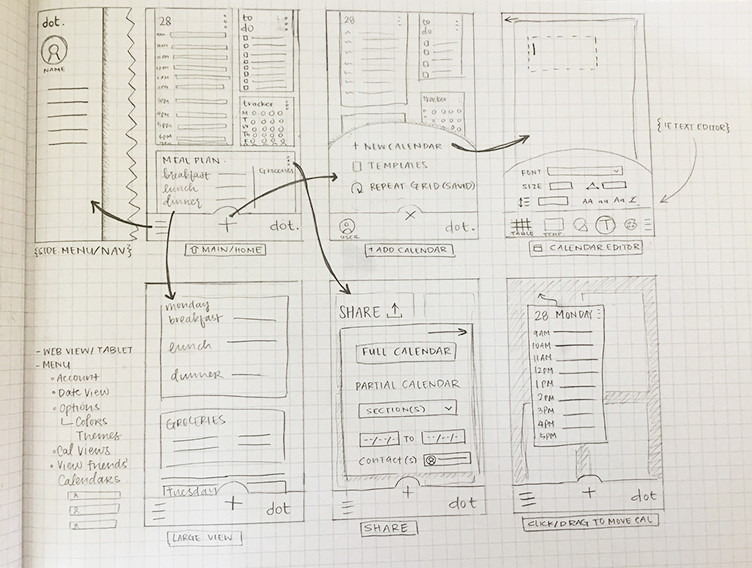 dot.
NAME
{SIDE MENU/NAV}
28
8AM
9AM
to
do
tracker
M
T
W
T
F
S
MEAL PLAN
breakfast
lunch
dinner
GROCERIES
+
dot.
MAIN/HOME
28
to
do
tracker
+ NEW CALENDAR
TEMPLATES
REPEAT GRID (SAVED)
×
USER
dot.
+ ADD CALENDAR
{IF TEXT EDITOR}
FONT
SIZE
AA aa Aa
TABLE
TEMP
T
CALENDAR EDITOR
- WEB VIEW/TABLET
- MENU
Account
Date View
Options
Colors
Themes
Cal Views
View Friends'
Calendars
monday
breakfast
lunch
dinner
GROCERIES
Tuesday
+
dot
LARGE VIEW
SHARE
FULL CALENDAR
PARTIAL CALENDAR
SECTION(S)
--/--/-- TO --/--/--
CONTACT(S)
+
dot
SHARE
28 MONDAY
9AM
10AM
11AM
12PM
1PM
2PM
3PM
4PM
5PM
+
dot
CLICK/DRAG TO MOVE CAL